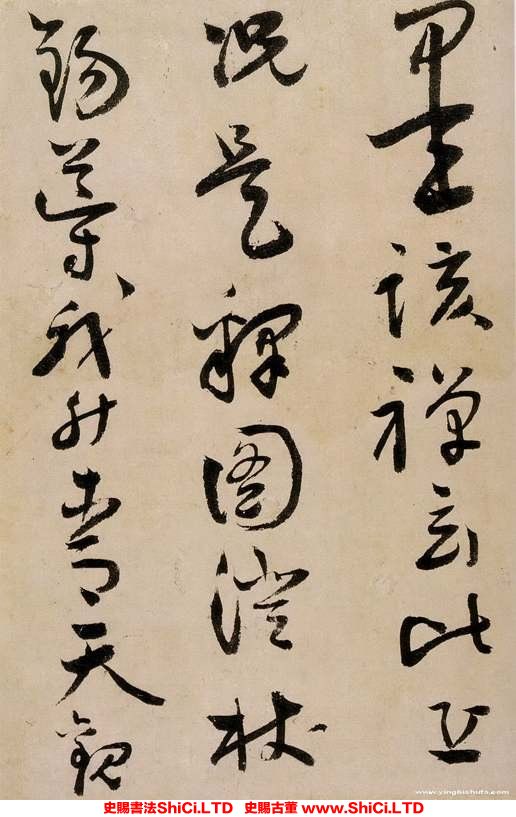 該禪
況是釋圖澄杖
錫導我升青天觀
www.yingbishufa.com
史賜書法ShiCi.LTD 史賜古董 www.ShiCi.LTD